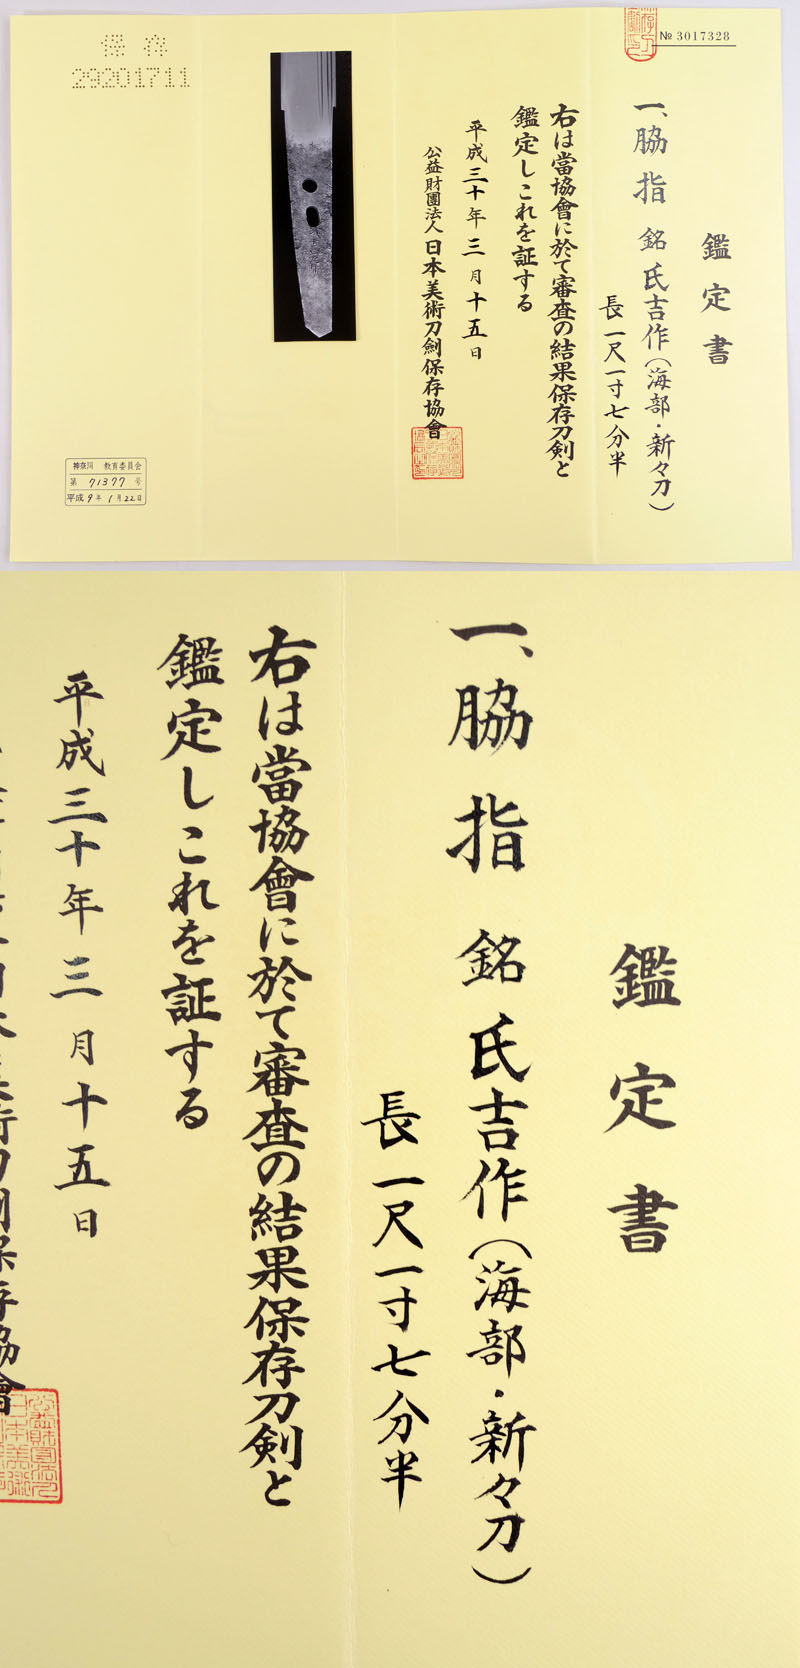 № 3017328
鑑定書
一、脇指 銘 氏吉作(海部・新々刀)
長一尺一寸七分半
右は當協會に於て審査の結果保存刀剣と
鑑定しこれを証する
平成三十年三月十五日
公益財團法人日本美術刀劍保存協會
保存
29201711
神奈川 教育委員会
第 71377 号
平成9年1月22日
鑑定書
一、脇指 銘 氏吉作(海部・新々刀)
長一尺一寸七分半
右は當協會に於て審査の結果保存刀剣と
鑑定しこれを証する
平成三十年三月十五日